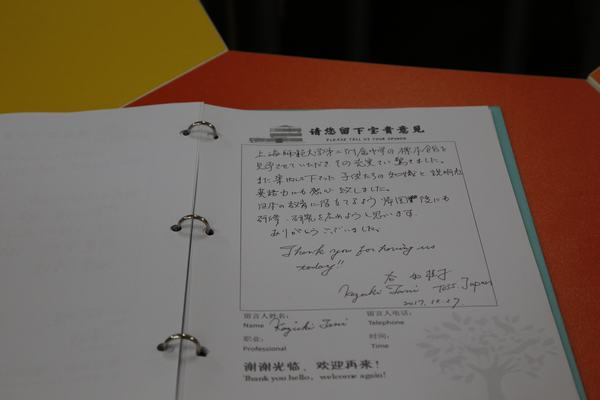 请您留下宝贵意见
PLEASE TELL US YOUR OPINION
上海師範大学第二附属中学の標本館を
見学させていただき その充実さに 驚きました。
また案内して下さった 子供たちの知識と説明力
英語力にも感心致しました。
日本の教育に活用できるよう 帰国後にも
研修、研究を広めようと思います。
ありがとうございました。
Thank you for having us
today!!
Tess. Japan
2017.12.27.
留言人姓名: 留言人电话:
Name Telephone
职业: 时间:
Professional Time
谢谢光临，欢迎再来！
Thank you hello, welcome again!